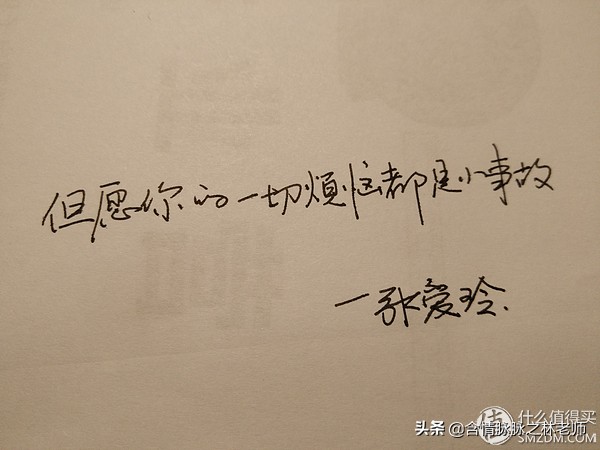 但愿你的一切烦恼都是小事故
一张爱玲.
头条 @含情脉脉之林老师
值 什么值得买
SMZDM.COM